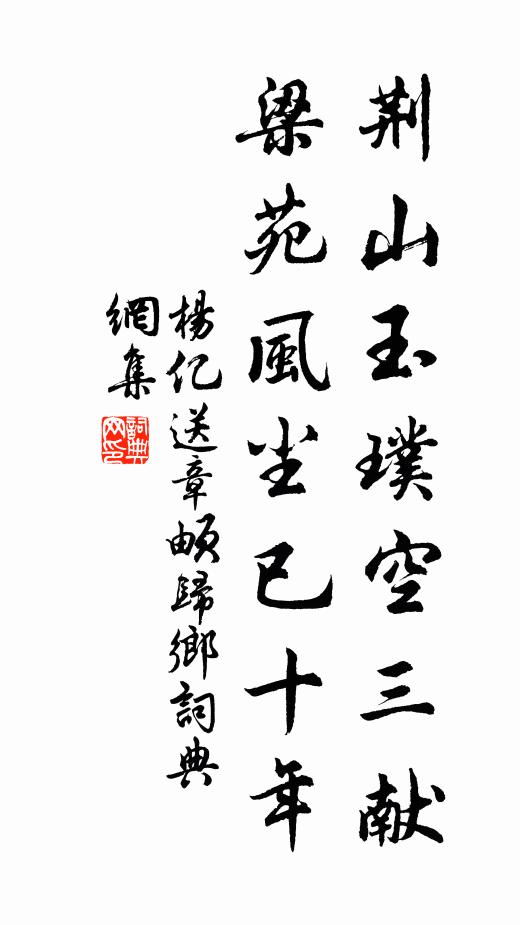 荆山玉璞空三献
梁苑風尘已十年
楊亿送章頔歸鄉詞典
網集
詞典网印